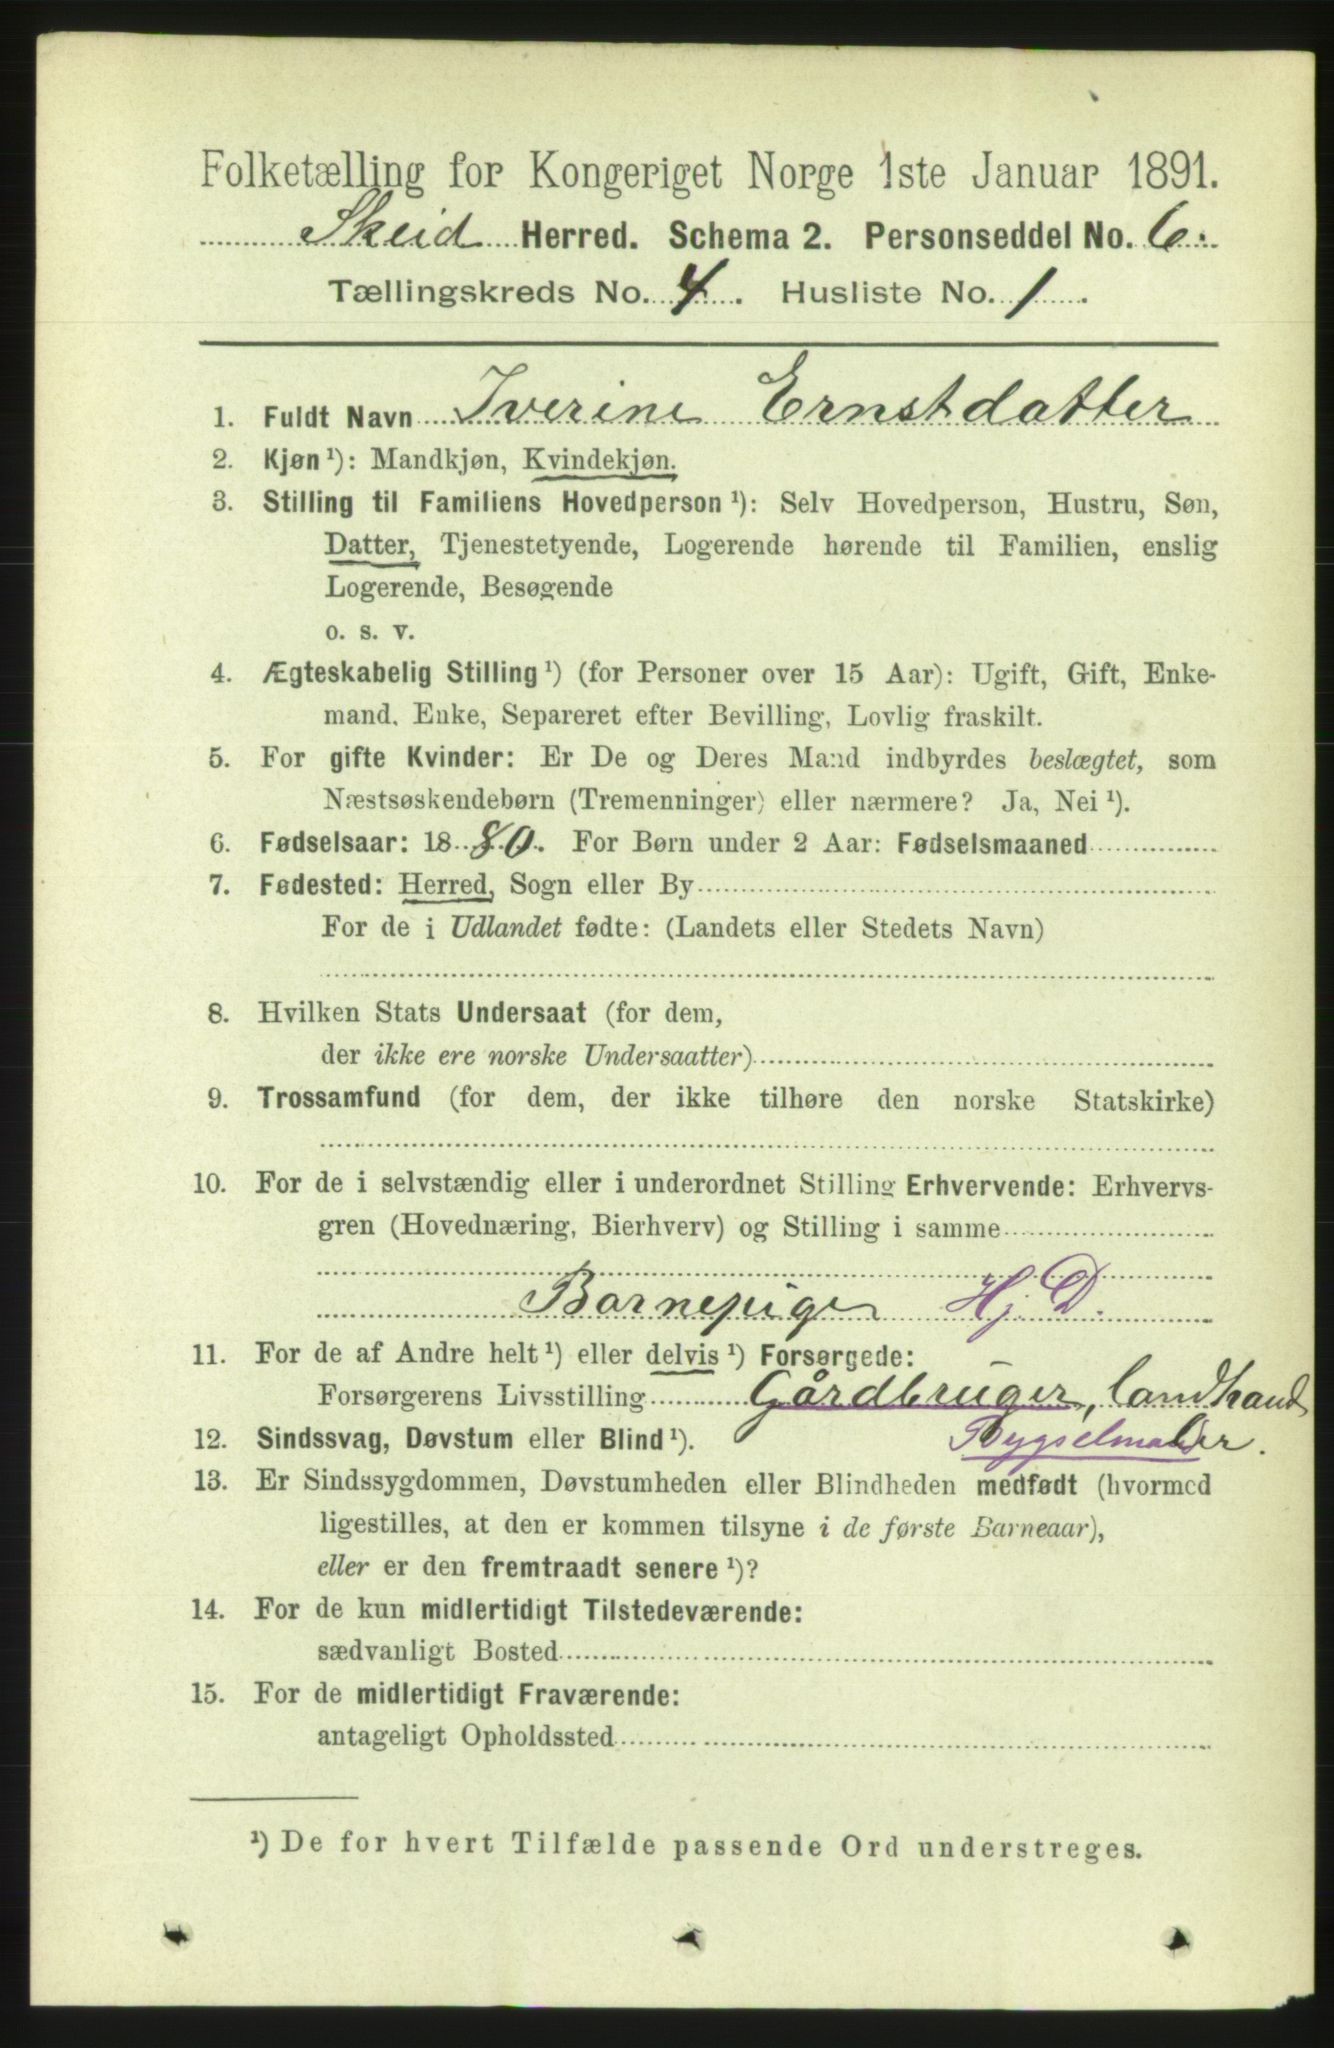 Folketælling for Kongeriget Norge 1ste Januar 1891.
Skeid Herred. Schema 2. Personseddel No. 6.
Tællingskreds No. 4. Husliste No. 1.
1. Fuldt Navn Iverine Ernstdatter
2. Kjøn ¹): Mandkjøn, Kvindekjøn.
3. Stilling til Familiens Hovedperson ¹): Selv Hovedperson, Hustru, Søn,
Datter, Tjenestetyende, Logerende hørende til Familien, enslig
Logerende, Besøgende
o. s. v.
4. Ægteskabelig Stilling ¹) (for Personer over 15 Aar): Ugift, Gift, Enke-
mand, Enke, Separeret efter Bevilling, Lovlig fraskilt.
5. For gifte Kvinder: Er De og Deres Mand indbyrdes beslægtet, som
Næstsøskendebørn (Tremenninger) eller nærmere? Ja, Nei ¹).
6. Fødselsaar: 1880. For Børn under 2 Aar: Fødselsmaaned
7. Fødested: Herred, Sogn eller By
For de i Udlandet fødte: (Landets eller Stedets Navn)
8. Hvilken Stats Undersaat (for dem,
der ikke ere norske Undersaatter)
9. Trossamfund (for dem, der ikke tilhøre den norske Statskirke)
10. For de i selvstændig eller i underordnet Stilling Erhvervende: Erhvervs-
gren (Hovednæring, Bierhverv) og Stilling i samme
Barnepige Hj. D.
11. For de af Andre helt ¹) eller delvis ¹) Forsørgede:
Forsørgerens Livsstilling Gårdbruger, landhand
12. Sindssvag, Døvstum eller Blind ¹). ler.
13. Er Sindssygdommen, Døvstumheden eller Blindheden medfødt (hvormed
ligestilles, at den er kommen tilsyne i de første Barneaar),
eller er den fremtraadt senere ¹)?
14. For de kun midlertidigt Tilstedeværende:
sædvanligt Bosted
15. For de midlertidigt Fraværende:
antageligt Opholdssted
¹) De for hvert Tilfælde passende Ord understreges.